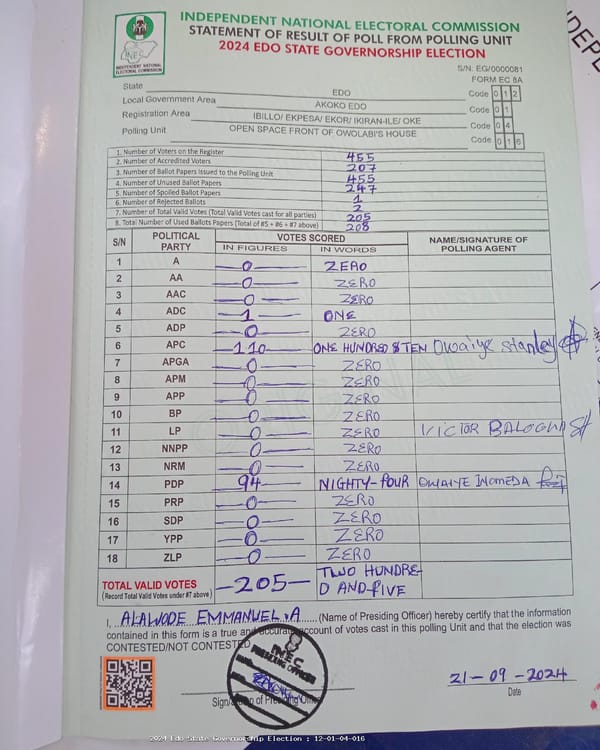 INDEPENDENT NATIONAL ELECTORAL COMMISSION
STATEMENT OF RESULT OF POLL FROM POLLING UNIT
2024 EDO STATE GOVERNORSHIP ELECTION
INEC
INDEPENDENT NATIONAL
ELECTORAL COMMISSION
S/N: EG/0000081
FORM EC 8A
State EDO Code 0 1 2
Local Government Area AKOKO EDO Code 0 1
Registration Area IBILLO/ EKPESA/ EKOR/ IKIRAN-ILE/ OKE Code 0 4
Polling Unit OPEN SPACE FRONT OF OWOLABI'S HOUSE Code 0 1 6
1. Number of Voters on the Register 455
2. Number of Accredited Voters 207
3. Number of Ballot Papers Issued to the Polling Unit 455
4. Number of Unused Ballot Papers 247
5. Number of Spoiled Ballot Papers 1
6. Number of Rejected Ballots 2
7. Number of Total Valid Votes (Total Valid Votes cast for all parties) 205
8. Total Number of Used Ballots Papers (Total of #5 + #6 + #7 above) 208
S/N POLITICAL PARTY VOTES SCORED NAME/SIGNATURE OF POLLING AGENT
IN FIGURES IN WORDS
1 A 0 ZERO
2 AA 0 ZERO
3 AAC 0 ZERO
4 ADC 1 ONE
5 ADP 0 ZERO
6 APC 110 ONE HUNDRED & TEN Owaiye Stanley
7 APGA 0 ZERO
8 APM 0 ZERO
9 APP 0 ZERO
10 BP 0 ZERO
11 LP 0 ZERO VICTOR BALOGUN
12 NNPP 0 ZERO
13 NRM 0 ZERO
14 PDP 94 NIGHTY-FOUR OWAIYE INOMEDA
15 PRP 0 ZERO
16 SDP 0 ZERO
17 YPP 0 ZERO
18 ZLP 0 ZERO
TOTAL VALID VOTES -205- TWO HUNDRE-
(Record Total Valid Votes under #7 above) D AND-FIVE
I, ALAWODE EMMANUEL .A (Name of Presiding Officer) hereby certify that the information
contained in this form is a true and accurate account of votes cast in this polling Unit and that the election was
CONTESTED/NOT CONTESTED
INEC
PRESIDING OFFICER
21-09-2024
Sign/Stamp of Presiding Officer
Date
2024 Edo State Governorship Election : 12-01-04-016